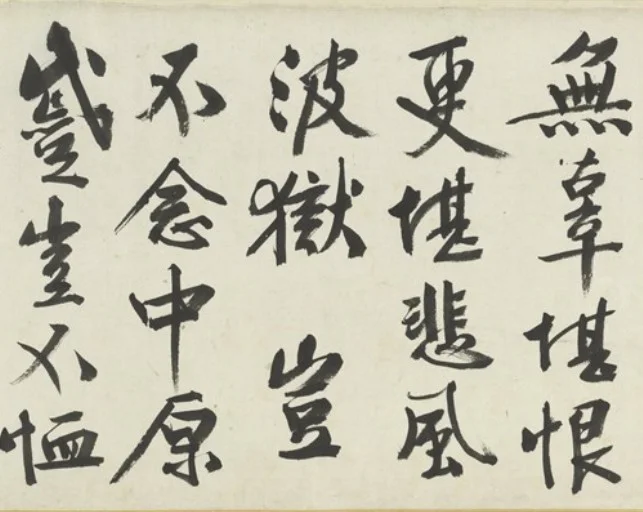 無辜堪恨
更堪悲風
波獄 豈
不念中原
蹙豈不恤